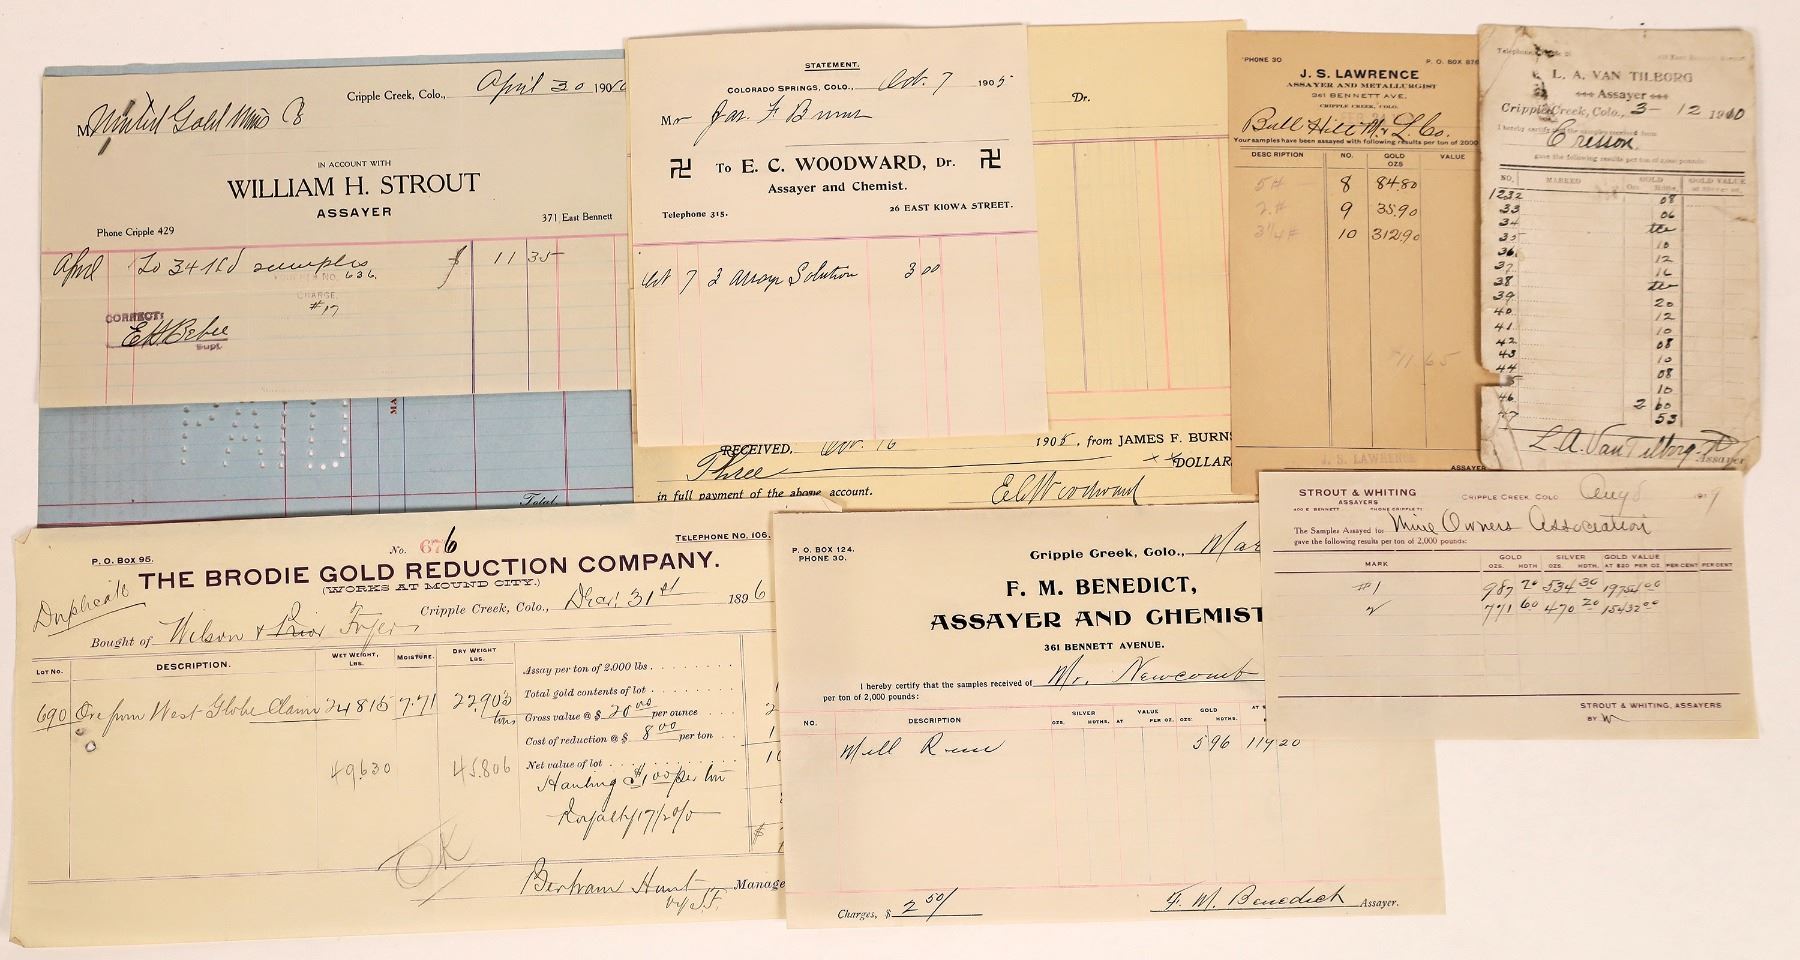 Cripple Creek, Colo., April 30 190
M United Gold Mines Co
IN ACCOUNT WITH
WILLIAM H. STROUT
ASSAYER
371 East Bennett
Phone Cripple 429
April To 34 samples $ 11 35
NO. 636
CHARGE,
#17
CORRECT:
Supt.
MA
Total
STATEMENT.
COLORADO SPRINGS, COLO., Oct. 7 1905
Mr Jas. F Burns
To E. C. WOODWARD, Dr.
Assayer and Chemist.
Telephone 315. 26 EAST KIOWA STREET.
Oct 7 2 assays Solution 3 00
Dr.
RECEIVED, 16 1905, from JAMES F. BURNS
Three DOLLAR
in full payment of the above account.
E C Woodward
PHONE 30 P. O. BOX 876
J. S. LAWRENCE
ASSAYER AND METALLURGIST
361 BENNETT AVE.
CRIPPLE CREEK, COLO.
Bull Hill M. & L. Co.
Your samples have been assayed with following results per ton of 2000
DESCRIPTION NO. GOLD OZS VALUE
5# 8 84.80
2.# 9 35.90
3 1/4# 10 312.90
11 65
J. S. LAWRENCE
ASSAYER
L. A. VAN TILBORG
Assayer
Cripple Creek, Colo., 3- 12 1910
I hereby certify that the samples received from
Cresson
gave the following results per ton of 2,000 pounds:
NO. MARKED GOLD Ozs. Hdths. GOLD VALUE
1232 08
33 06
34 tr
35 10
36 12
37 16
38 tr
39 20
40 12
41 10
42 08
43 10
44 08
5 10
46 2 60
47 53
L. A. Van Tilborg
Assayer
P. O. BOX 95. No. 676 TELEPHONE NO. 106.
THE BRODIE GOLD REDUCTION COMPANY.
(WORKS AT MOUND CITY.)
Duplicate
Cripple Creek, Colo., Dec. 31st 1896
Bought of Wilson & Prior
LOT NO. DESCRIPTION. WET WEIGHT, LBS. MOISTURE. DRY WEIGHT LBS.
690 Ore from West Globe Claim 24815 7.71 22.903
49630 45.806
Assay per ton of 2,000 lbs
Total gold contents of lot
Gross value @ $ 20 00 per ounce
Cost of reduction @ $ 8 00 per ton
Net value of lot
Hauling $1 00 per ton
Royalty 17 1/2 0/0
$
OK
Bertram Hunt Manage
P. O. BOX 124.
PHONE 30.
Cripple Creek, Colo., Mar
F. M. BENEDICT,
ASSAYER AND CHEMIST
361 BENNETT AVENUE.
I hereby certify that the samples received of Mr. Newcomb
per ton of 2,000 pounds:
NO. DESCRIPTION SILVER OZS. HDTHS. VALUE AT PER OZ. GOLD OZS. HDTHS. AT $
Mill Run 5 96 119 20
Charges, $ 2 50/ F. M. Benedict Assayer.
STROUT & WHITING
ASSAYERS
400 E. BENNETT PHONE CRIPPLE 71
CRIPPLE CREEK, COLO Aug 8
The Samples Assayed for Mine Owners Association
gave the following results per ton of 2,000 pounds:
MARK GOLD OZS. HDTH SILVER OZS. HDTH GOLD VALUE AT $20 PER OZ. PER CENT PER CENT
#1 987 70 534 30 19754 00
2 771 60 470 20 15432 00
STROUT & WHITING, ASSAYERS
BY W